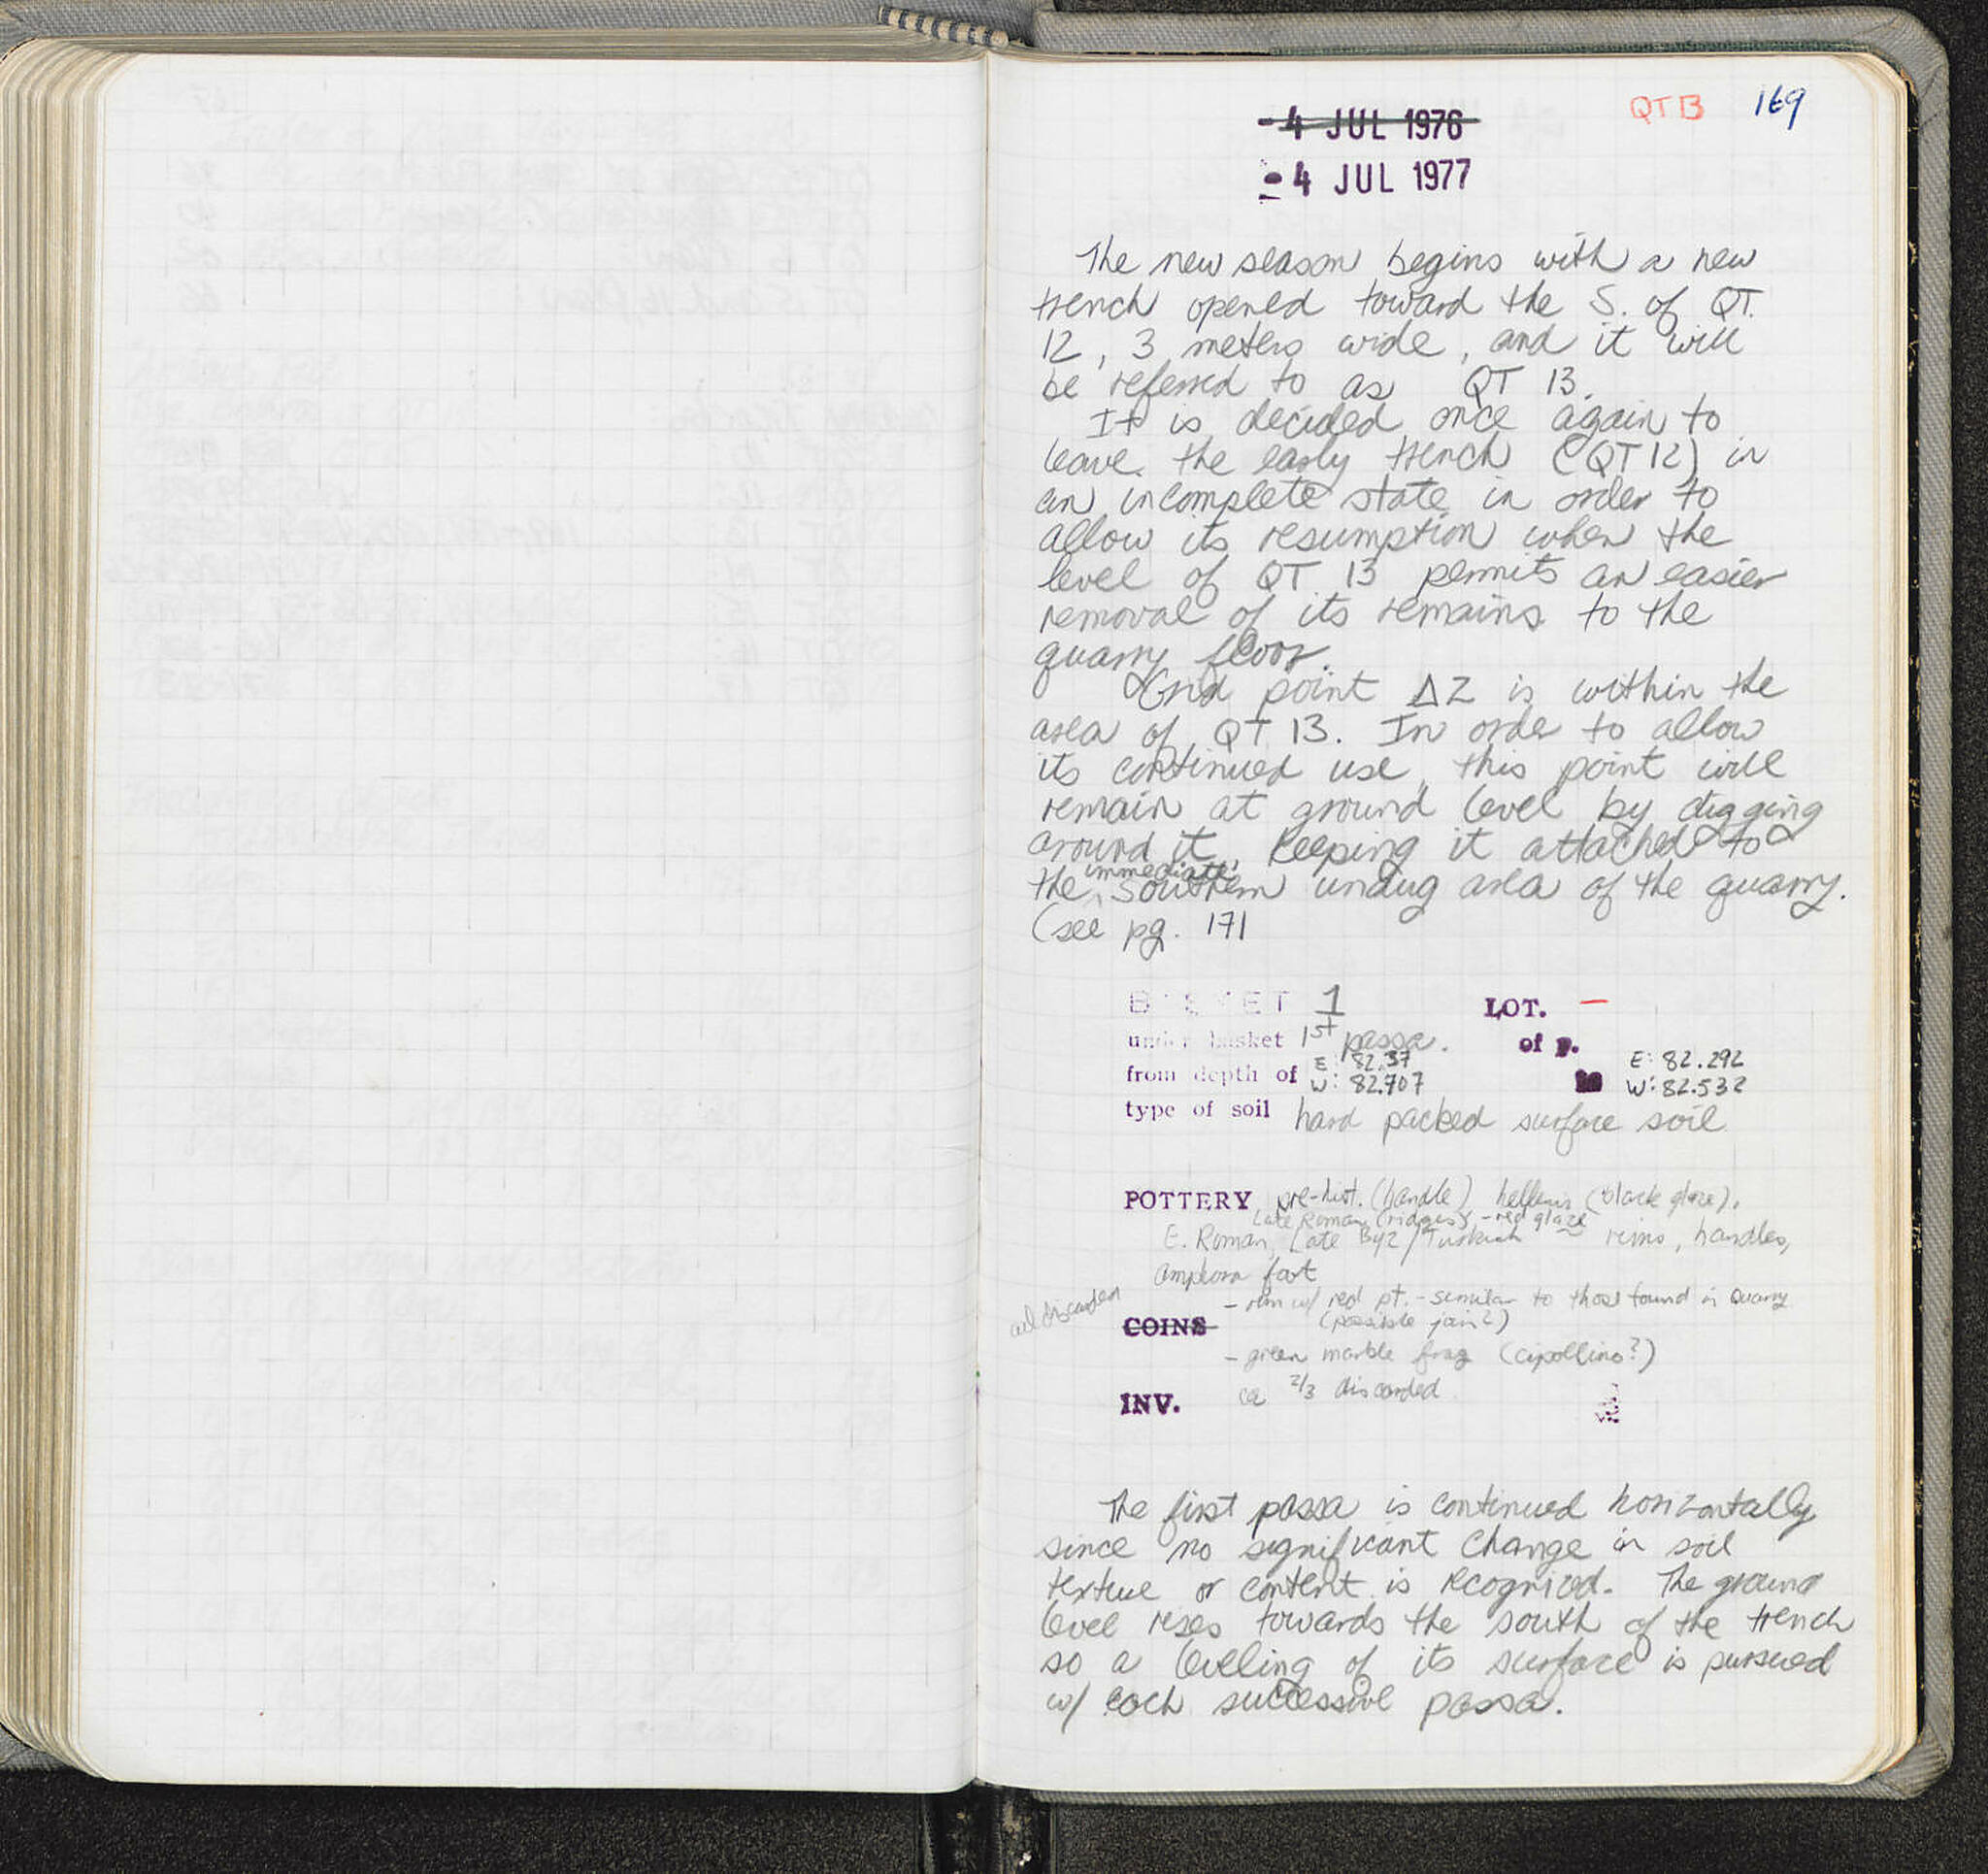 QT13 169
- 4 JUL 1976
- 4 JUL 1977
The new season begins with a new
trench opened toward the S. of QT.
12, 3 meters wide, and it will
be referred to as QT 13.
It is decided once again to
leave the early trench (QT 12) in
an incomplete state in order to
allow its resumption when the
level of QT 13 permits an easier
removal of its remains to the
quarry floor.
Grid point ΔZ is within the
area of QT 13. In order to allow
its continued use, this point will
remain at ground level by digging
around it, keeping it attached to
the immediate southern undug area of the quarry.
(see pg. 171
BASKET 1 LOT. —
under basket 1st passa. of p.
from depth of E: 82.37 W: 82.707 to E: 82.292 W: 82.532
type of soil hard packed surface soil
POTTERY pre-hist. (handle), hellenis (black glaze),
Late Roman (ridges), - red glaze
E. Roman, Late Byz/Turkish rims, handles,
amphora foot
- rim w/ red pt. - similar to those found in Quarry
all discarded
COINS (possible join?)
- green marble frag (cipollino?)
INV. ca 2/3 discarded
The first passa is continued horizontally
since no significant change in soil
texture or content is recognized. The ground
level rises towards the south of the trench
so a levelling of its surface is pursued
w/ each successive passa.